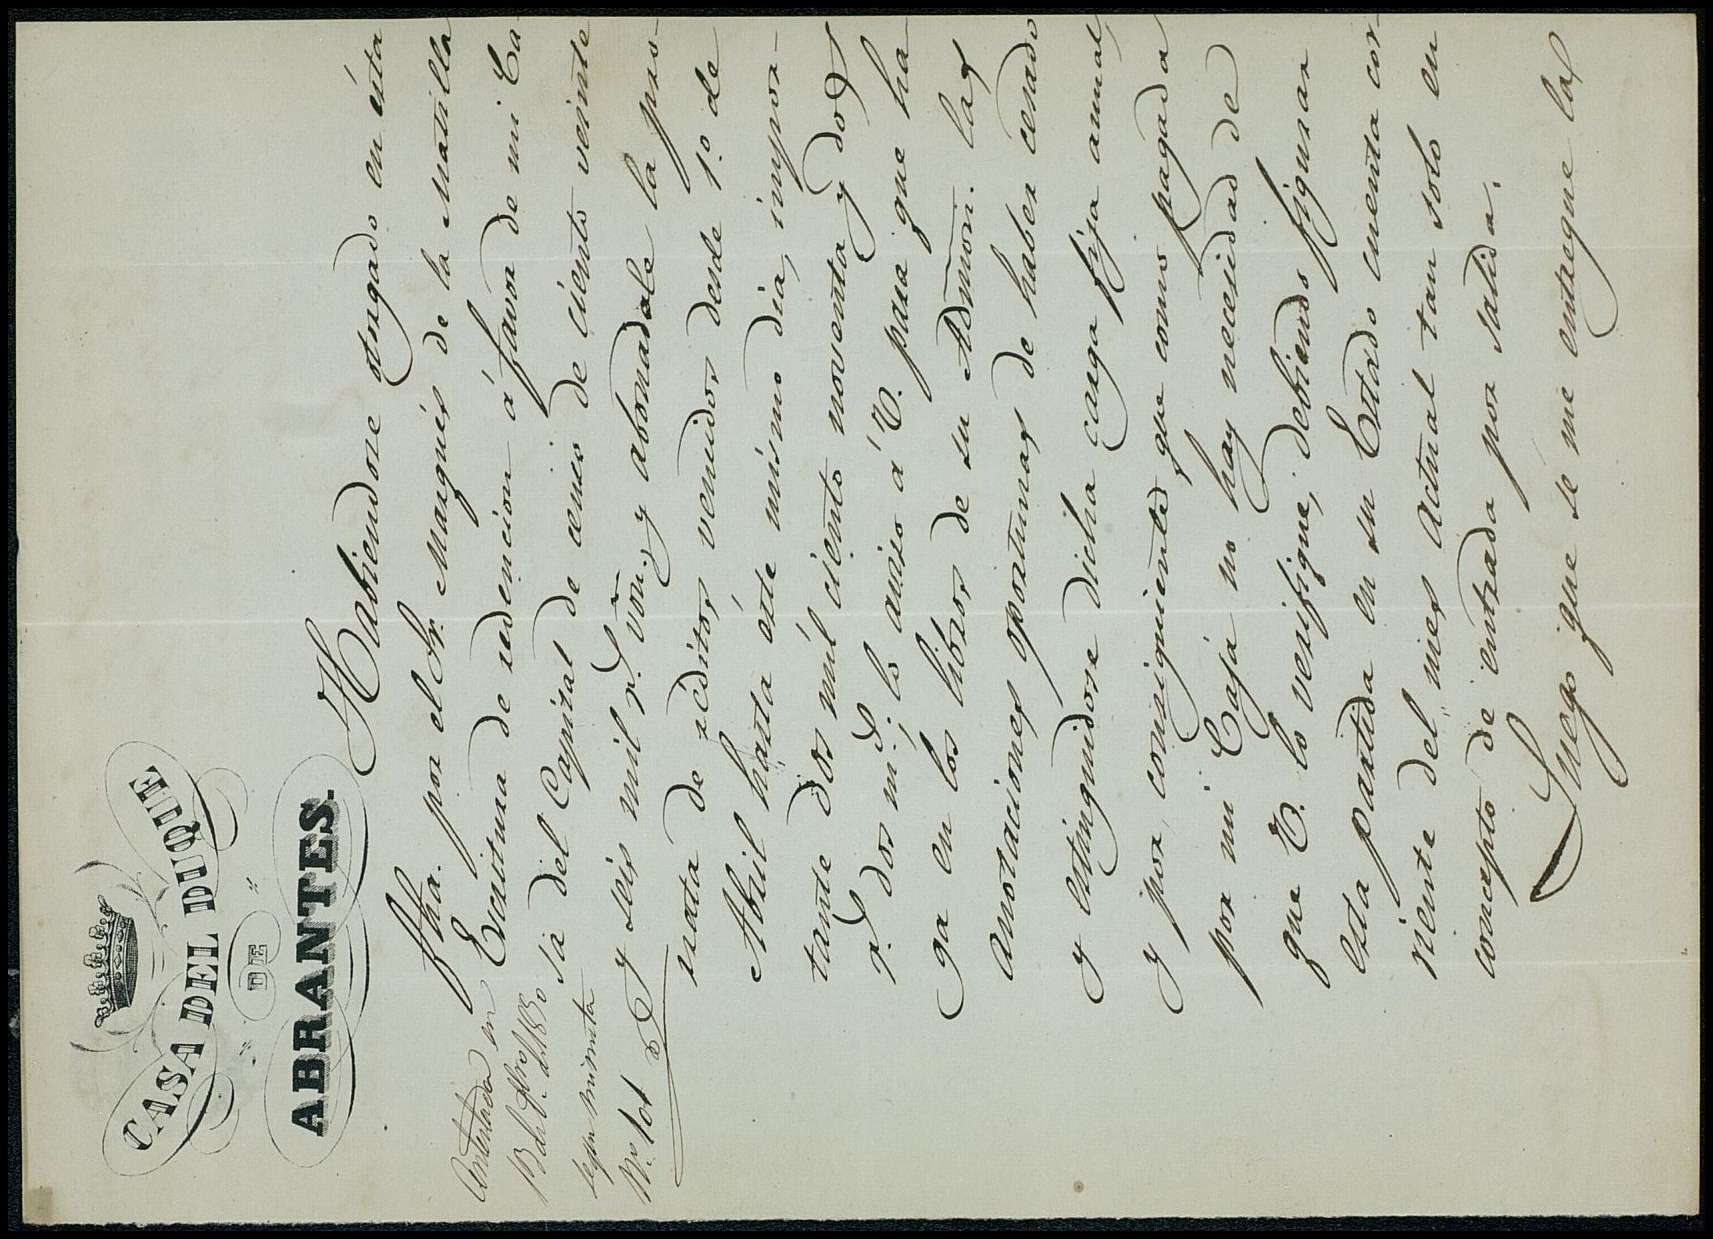 CASA DEL DUQUE
DE
ABRANTES.
Habiendose otorgado en ésta
fha. por el Sr. Marqués de la Matilla
Escritura de redencion á favor de mi Ca-
sa del Capital de censo de ciento veinte
y seis mil rs. von. y abonadole la pro-
rrata de réditos vencidos desde 1º. de
Abril hasta éste mismo dia, impor-
tante dos mil ciento noventa y dos
rs. dos ms; lo aviso á V. para que ha-
ga en los libros de su Admōn. las
anotaciones oportunas de haber cesado
y estinguidose dicha carga fija anual,
y por consiguiente que como pagada
por mi Caja no hay necesidad de
que V. lo verifique, debiendo figurar
esta partida en su Estado cuenta cor-
riente del mes actual tan solo en
concepto de entrada por salida.
Luego que se me entregue las
Contestada en
13 de 8bre de 1850
segun minuta
Nº. 101